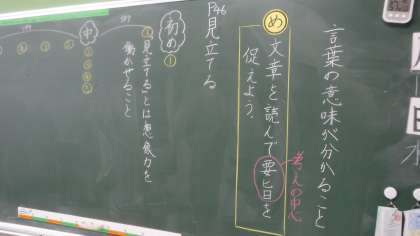 言葉の意味が分かること
め
文章を読んで要旨を
捉えよう。
考えの中心
P46
見立てる
初め
①
見立てることは想像力を
働かせること
中